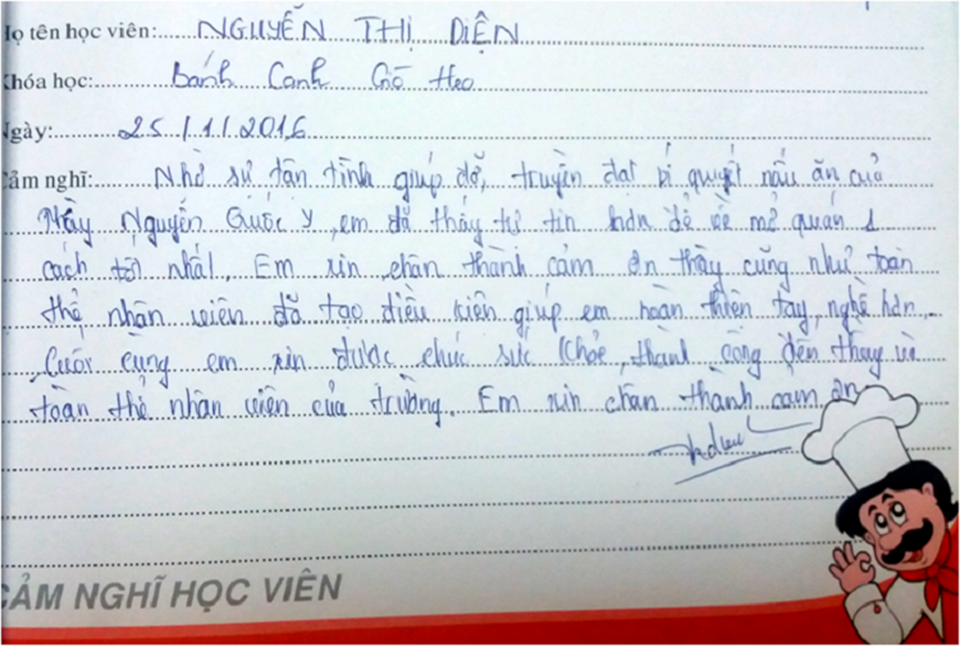 Họ tên học viên: NGUYỄN THỊ DIỆN
Khóa học: Bánh Canh Giò Heo
Ngày: 25/11/2016
Cảm nghĩ: Nhờ sự tận tình giúp đỡ, truyền đạt bí quyết nấu ăn của
thầy Nguyễn Quốc Y, em đã thấy tự tin hơn để về mở quán 1
cách tốt nhất. Em xin chân thành cảm ơn thầy cũng như toàn
thể nhân viên đã tạo điều kiện giúp em hoàn thiện tay nghề hơn.
Cuối cùng em xin được chúc sức khỏe, thành công đến thầy và
toàn thể nhân viên của trường. Em xin chân thành cam ơn
CẢM NGHĨ HỌC VIÊN